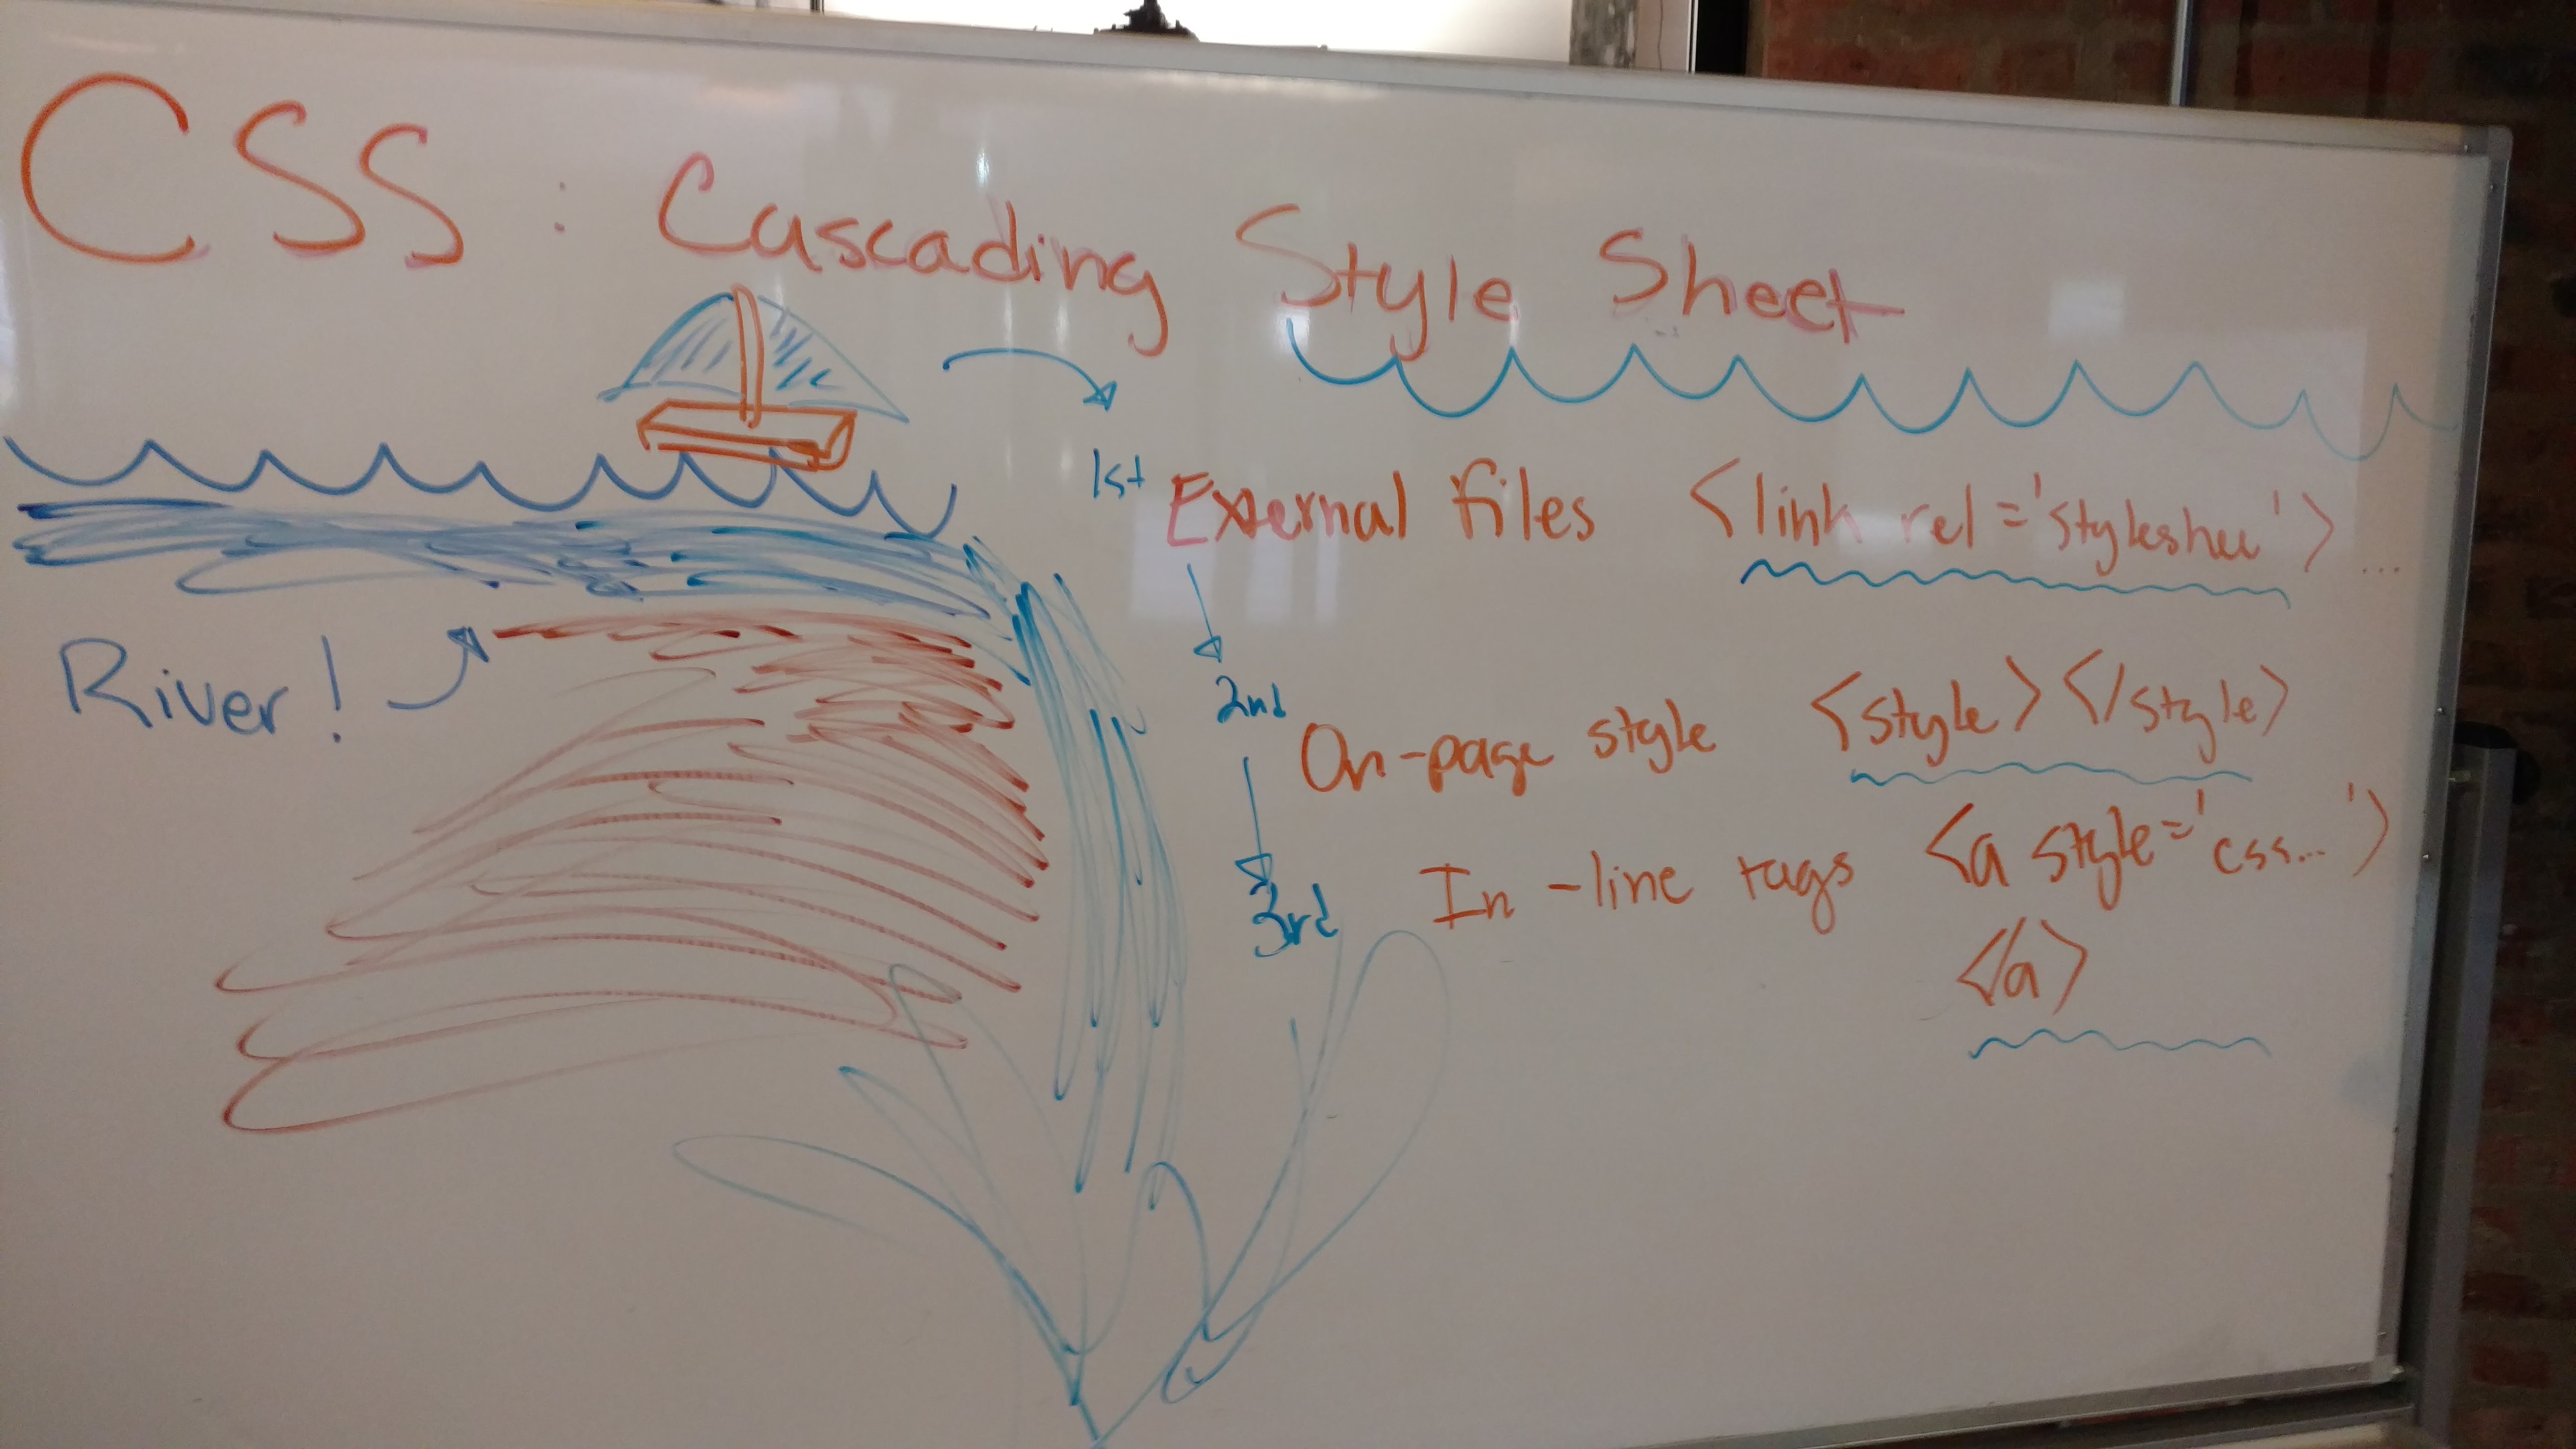 CSS : Cascading Style Sheet
1st External files <link rel='styleshee'> ...
River!
2nd On-page style <style></style>
3rd In-line tags <a style='css...'>
</a>